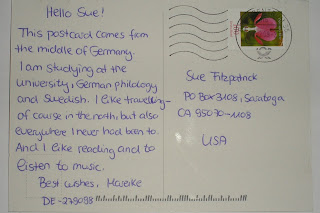 Hello Sue!
This postcard comes from
the middle of Germany.
I am studying at the
university, German philology
and Swedish. I like travelling -
of course in the north, but also
everywhere I never had been to.
And I like reading and to
listen to music.
Best wishes, Mareike
DE-279098
Sue Fitzpatrick
PO Box 3108, Saratoga
CA 95070-1108
USA